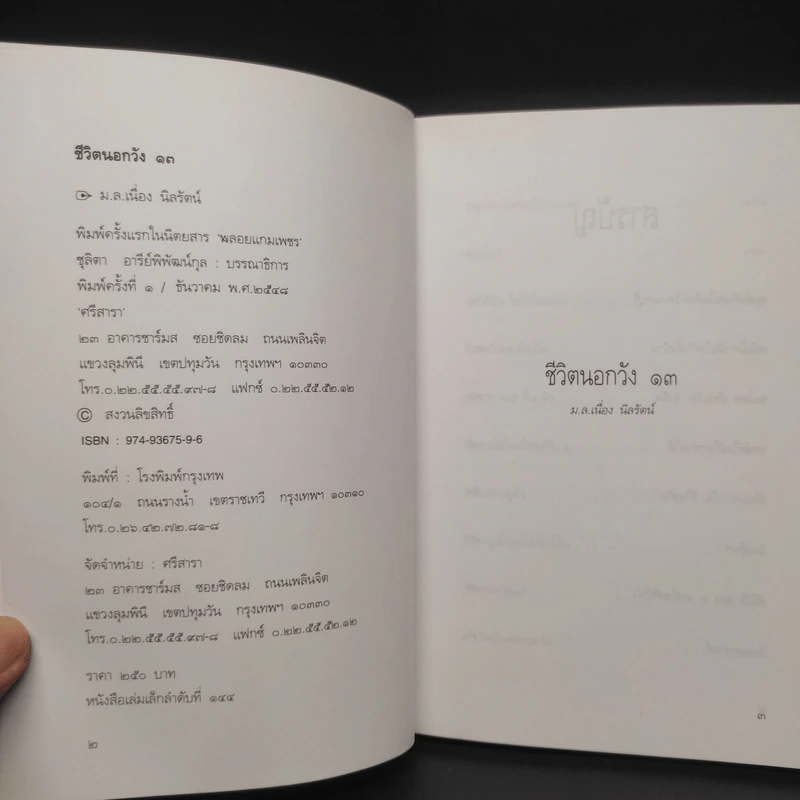 ชีวิตนอกวัง ๑๓
ม.ล.เนื่อง นิลรัตน์
พิมพ์ครั้งแรกในนิตยสาร 'พลอยแกมเพชร'
ชุลิตา อารีย์พิพัฒน์กุล : บรรณาธิการ
พิมพ์ครั้งที่ ๑ / ธันวาคม พ.ศ.๒๕๔๘
'ศรีสารา'
๒๓ อาคารชาร์มส ซอยชิดลม ถนนเพลินจิต
แขวงลุมพินี เขตปทุมวัน กรุงเทพฯ ๑๐๓๓๐
โทร.๐.๒๒.๕๕.๕๕.๙๗-๘ แฟกซ์ ๐.๒๒.๕๕.๕๒.๑๒
© สงวนลิขสิทธิ์
ISBN : 974-93675-9-6
พิมพ์ที่ : โรงพิมพ์กรุงเทพ
๑๐๔/๑ ถนนรางน้ำ เขตราชเทวี กรุงเทพฯ ๑๐๓๑๐
โทร.๐.๒๖.๔๒.๗๒.๘๑-๘
จัดจำหน่าย : ศรีสารา
๒๓ อาคารชาร์มส ซอยชิดลม ถนนเพลินจิต
แขวงลุมพินี เขตปทุมวัน กรุงเทพฯ ๑๐๓๓๐
โทร.๐.๒๒.๕๕.๕๕.๙๗-๘ แฟกซ์ ๐.๒๒.๕๕.๕๒.๑๒
ราคา ๒๕๐ บาท
หนังสือเล่มเล็กลำดับที่ ๑๔๔
๒
ชีวิตนอกวัง ๑๓
ม.ล.เนื่อง นิลรัตน์
๓